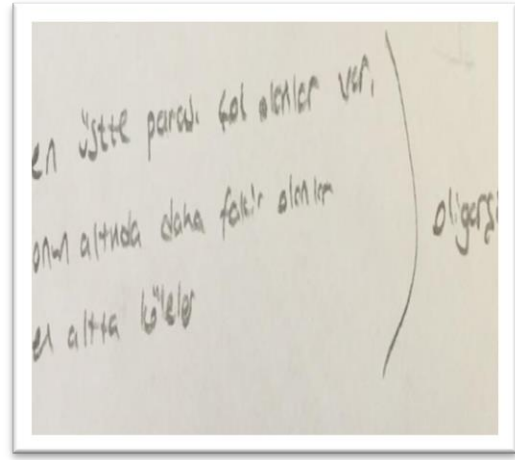 en üstte parası çok olanlar var,
onun altında daha fakir olanlar
en altta köleler
oligarşi